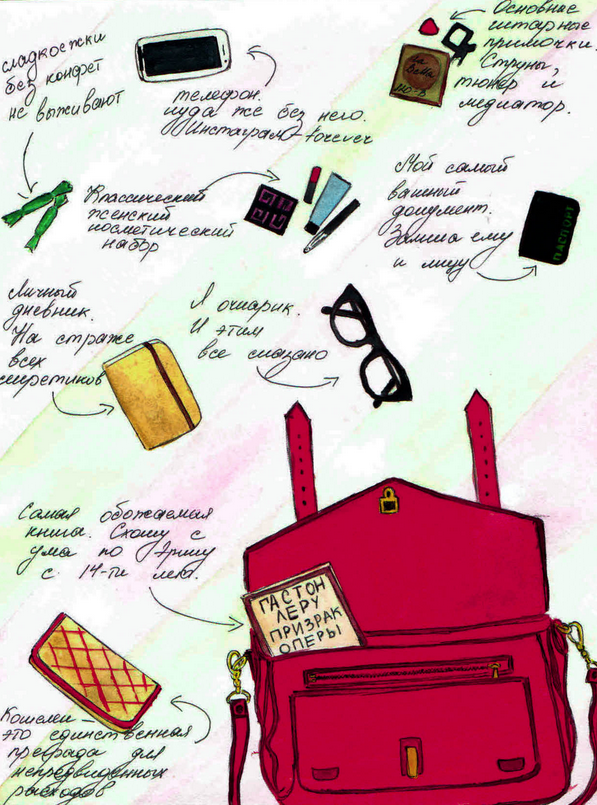 сладкоежки
без конфет
не выживают
телефон.
куда же без него.
Инстаграм forever
Основные
гитарные
примочки.
Струны,
тюнер и
медиатор.
La
BeЛla
Классический
женский
косметический
набор
Мой самый
важный
документ.
Замша ему
к лицу
ПАСПОРТ
Личный
дневник.
На страже
всех
секретиков
Я очкарик.
И этим
все сказано
Самая обожаемая
книга. Схожу с
ума по Эрику
с 14-ти лет.
ГАСТОН
ЛЕРУ
ПРИЗРАК
ОПЕРЫ
Кошелек –
это единственная
преграда для
непредвиденных
расходов